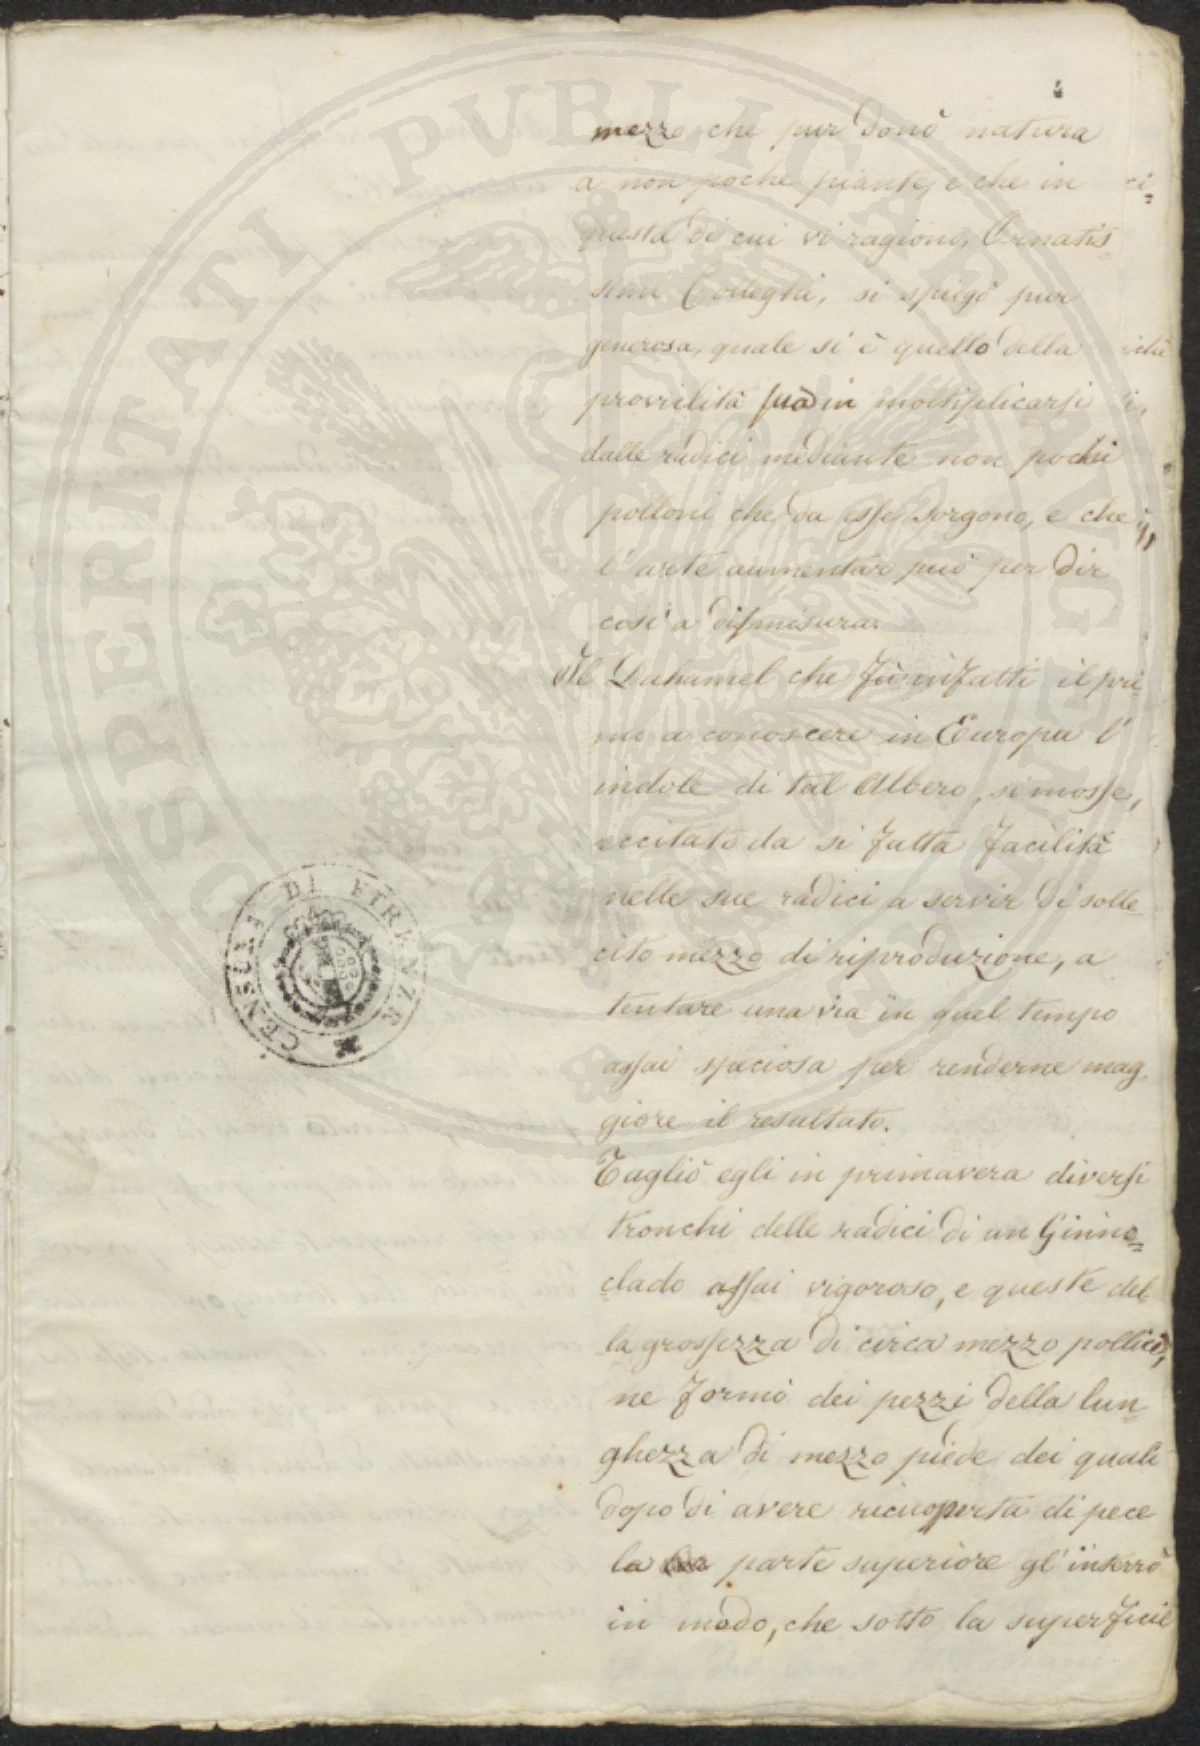 mezzo che pur donò natura
a non poche piante, e che in
questa di cui vi ragiono, Ornatis
simi Colleghi, si spiegò pur
generosa, quale si è quello della
proclività sua in moltiplicarsi
dalle radici mediante non pochi
polloni che da esse sorgono, e che
l'arte aumentar può per dir
così a dismisura.
Il Dahamel che fù infatti il pri
mo a conoscere in Europa l'
indole di tal Albero, si mosse,
eccitato da sì fatta facilità
nelle sue radici a servir di solle
cito mezzo di riproduzione, a
tentare una via in quel tempo
assai speciosa per renderne mag
giore il resultato.
Tagliò egli in primavera diversi
tronchi delle radici di un Ginno=
clado assai vigoroso, e queste del
la grossezza di circa mezzo pollice,
ne formò dei pezzi della lun
ghezza di mezzo piede dei quali
dopo di avere ricuoperta di pece
la parte superiore gl'interrò
in modo, che sotto la superficie
CENSURA DI FIRENZE
PROSPERITATI PVBLICAE AVGENDAE